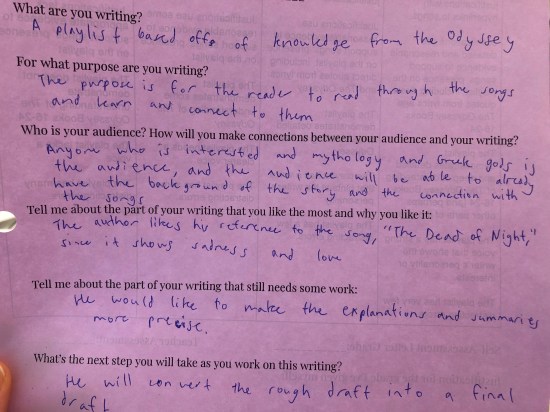 What are you writing?
A playlist based offs of knowledge from the Odyssey
For what purpose are you writing?
The purpose is for the reader to read through the songs
and learn and connect to them
Who is your audience? How will you make connections between your audience and your writing?
Anyone who is interested and mythology and Greek gods is
the audience, and the audience will be able to already
have the background of the story and the connection with
the songs
Tell me about the part of your writing that you like the most and why you like it:
The author likes his reference to the song, "The Dead of Night,"
since it shows sadness and love
Tell me about the part of your writing that still needs some work:
He would like to make the explanations and summaries
more precise.
What's the next step you will take as you work on this writing?
He will convert the rough draft into a final
draft